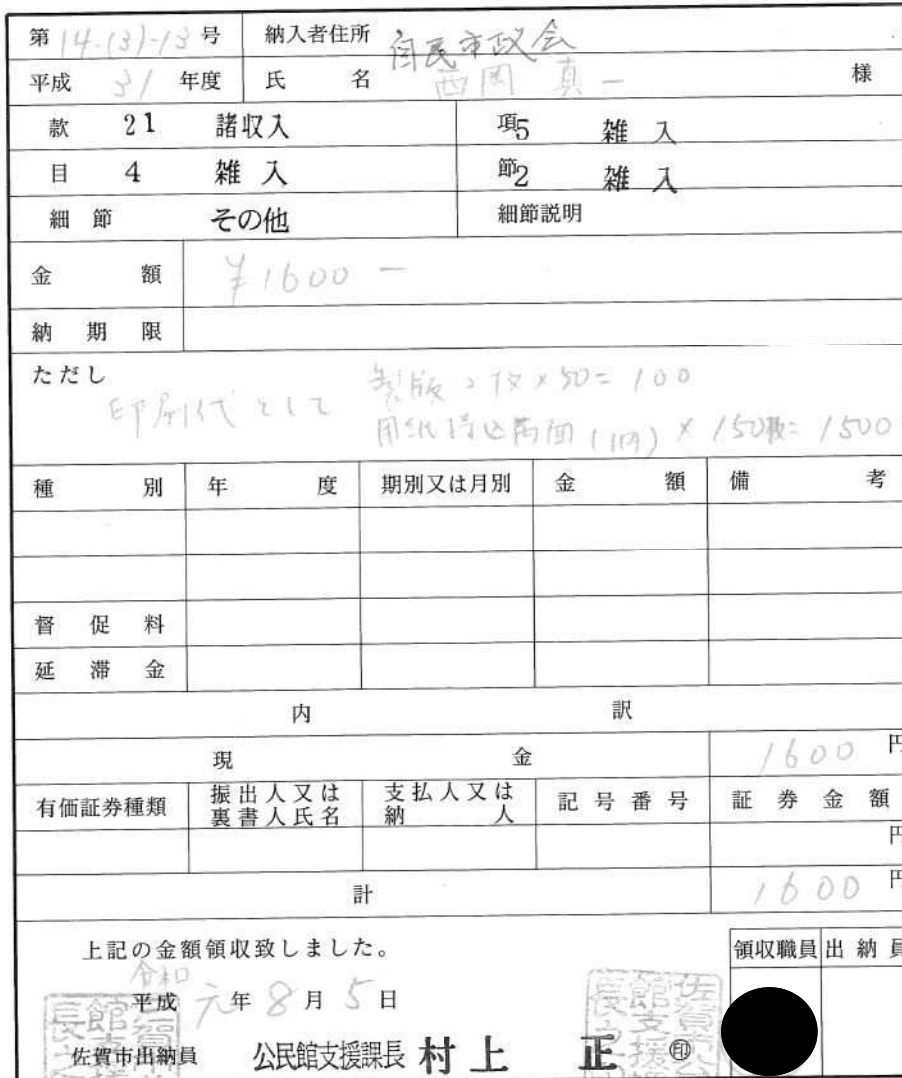 第14-(3)-13号 納入者住所 自民市政会
平成 31 年度 氏名 西岡 真一 様
款 21 諸収入 項5 雑入
目 4 雑入 節2 雑入
細節 その他 細節説明
金額 ¥1600-
納期限
ただし 製版2枚×50=100
印刷代として
用紙持込両面(10円)×150枚=1500
種別 年度 期別又は月別 金額 備考
督促料
延滞金
内訳
現金 1600円
有価証券種類 振出人又は裏書人氏名 支払人又は納人 記号番号 証券金額
円
計 1600円
上記の金額領収致しました。 領収職員 出納員
令和
平成 元年8月5日
佐賀市出納員 公民館支援課長 村上 正 ㊞